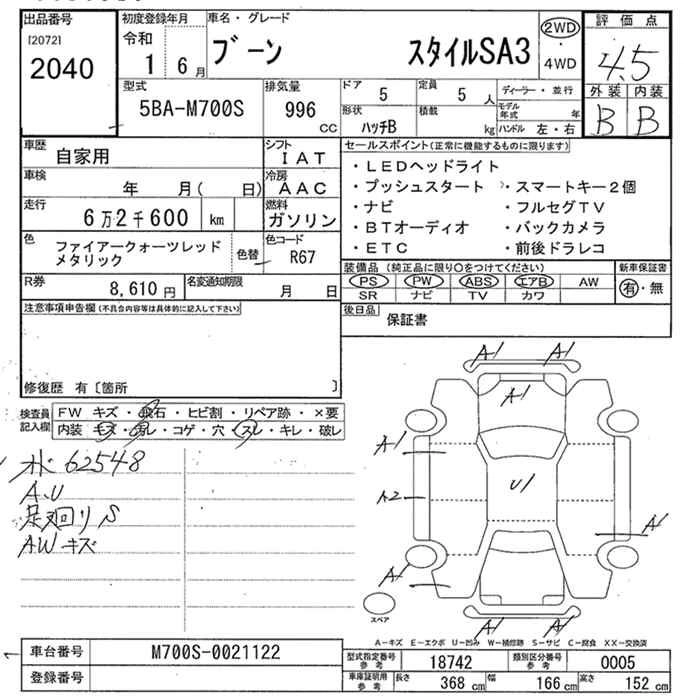 出品番号
[2072]
2040
初度登録年月
令和
1 6月
車名・グレード
ブーン スタイルSA3
2WD
・
4WD
評価点
4.5
外装 内装
B B
型式
5BA-M700S
排気量
996
CC
ドア 5
定員 5 人
ディーラー・並行
形状
ハッチB
積載
kg
モデル年式 年
ハンドル 左・右
車歴
自家用
シフト
IAT
車検
年 月( 日)
冷房
AAC
走行
6万2千600 km
燃料
ガソリン
色
ファイアークォーツレッド
メタリック
色替
色コード
R67
R券
8,610円
名変通知期限
月 日
セールスポイント(正常に機能するものに限ります)
・LEDヘッドライト
・プッシュスタート ・スマートキー2個
・ナビ ・フルセグTV
・BTオーディオ ・バックカメラ
・ETC ・前後ドラレコ
装備品(純正品に限り○をつけてください)
新車保証書
PS PW ABS エアB AW
SR ナビ TV カワ
有・無
後日品
保証書
注意事項申告欄(不具合内容等は具体的に記入して下さい)
修復歴 有〔箇所 〕
検査員
記入欄
FW キズ・飛石・ヒビ割・リペア跡・×要
内装 キズ・汚レ・コゲ・穴・スレ・キレ・破レ
62548
A.U
足廻りS
AWキズ
A1 A1
A1
A1
A2
U1
A1
A1
A1 A1
スペア
A-キズ E-エクボ U-凹み W-補修跡 S-サビ C-腐食 XX-交換済
車台番号
M700S-0021122
登録番号
型式指定番号
参考
18742
類別区分番号
参考
0005
車庫証明用
参考
長さ 368 cm
幅 166 cm
高さ 152 cm